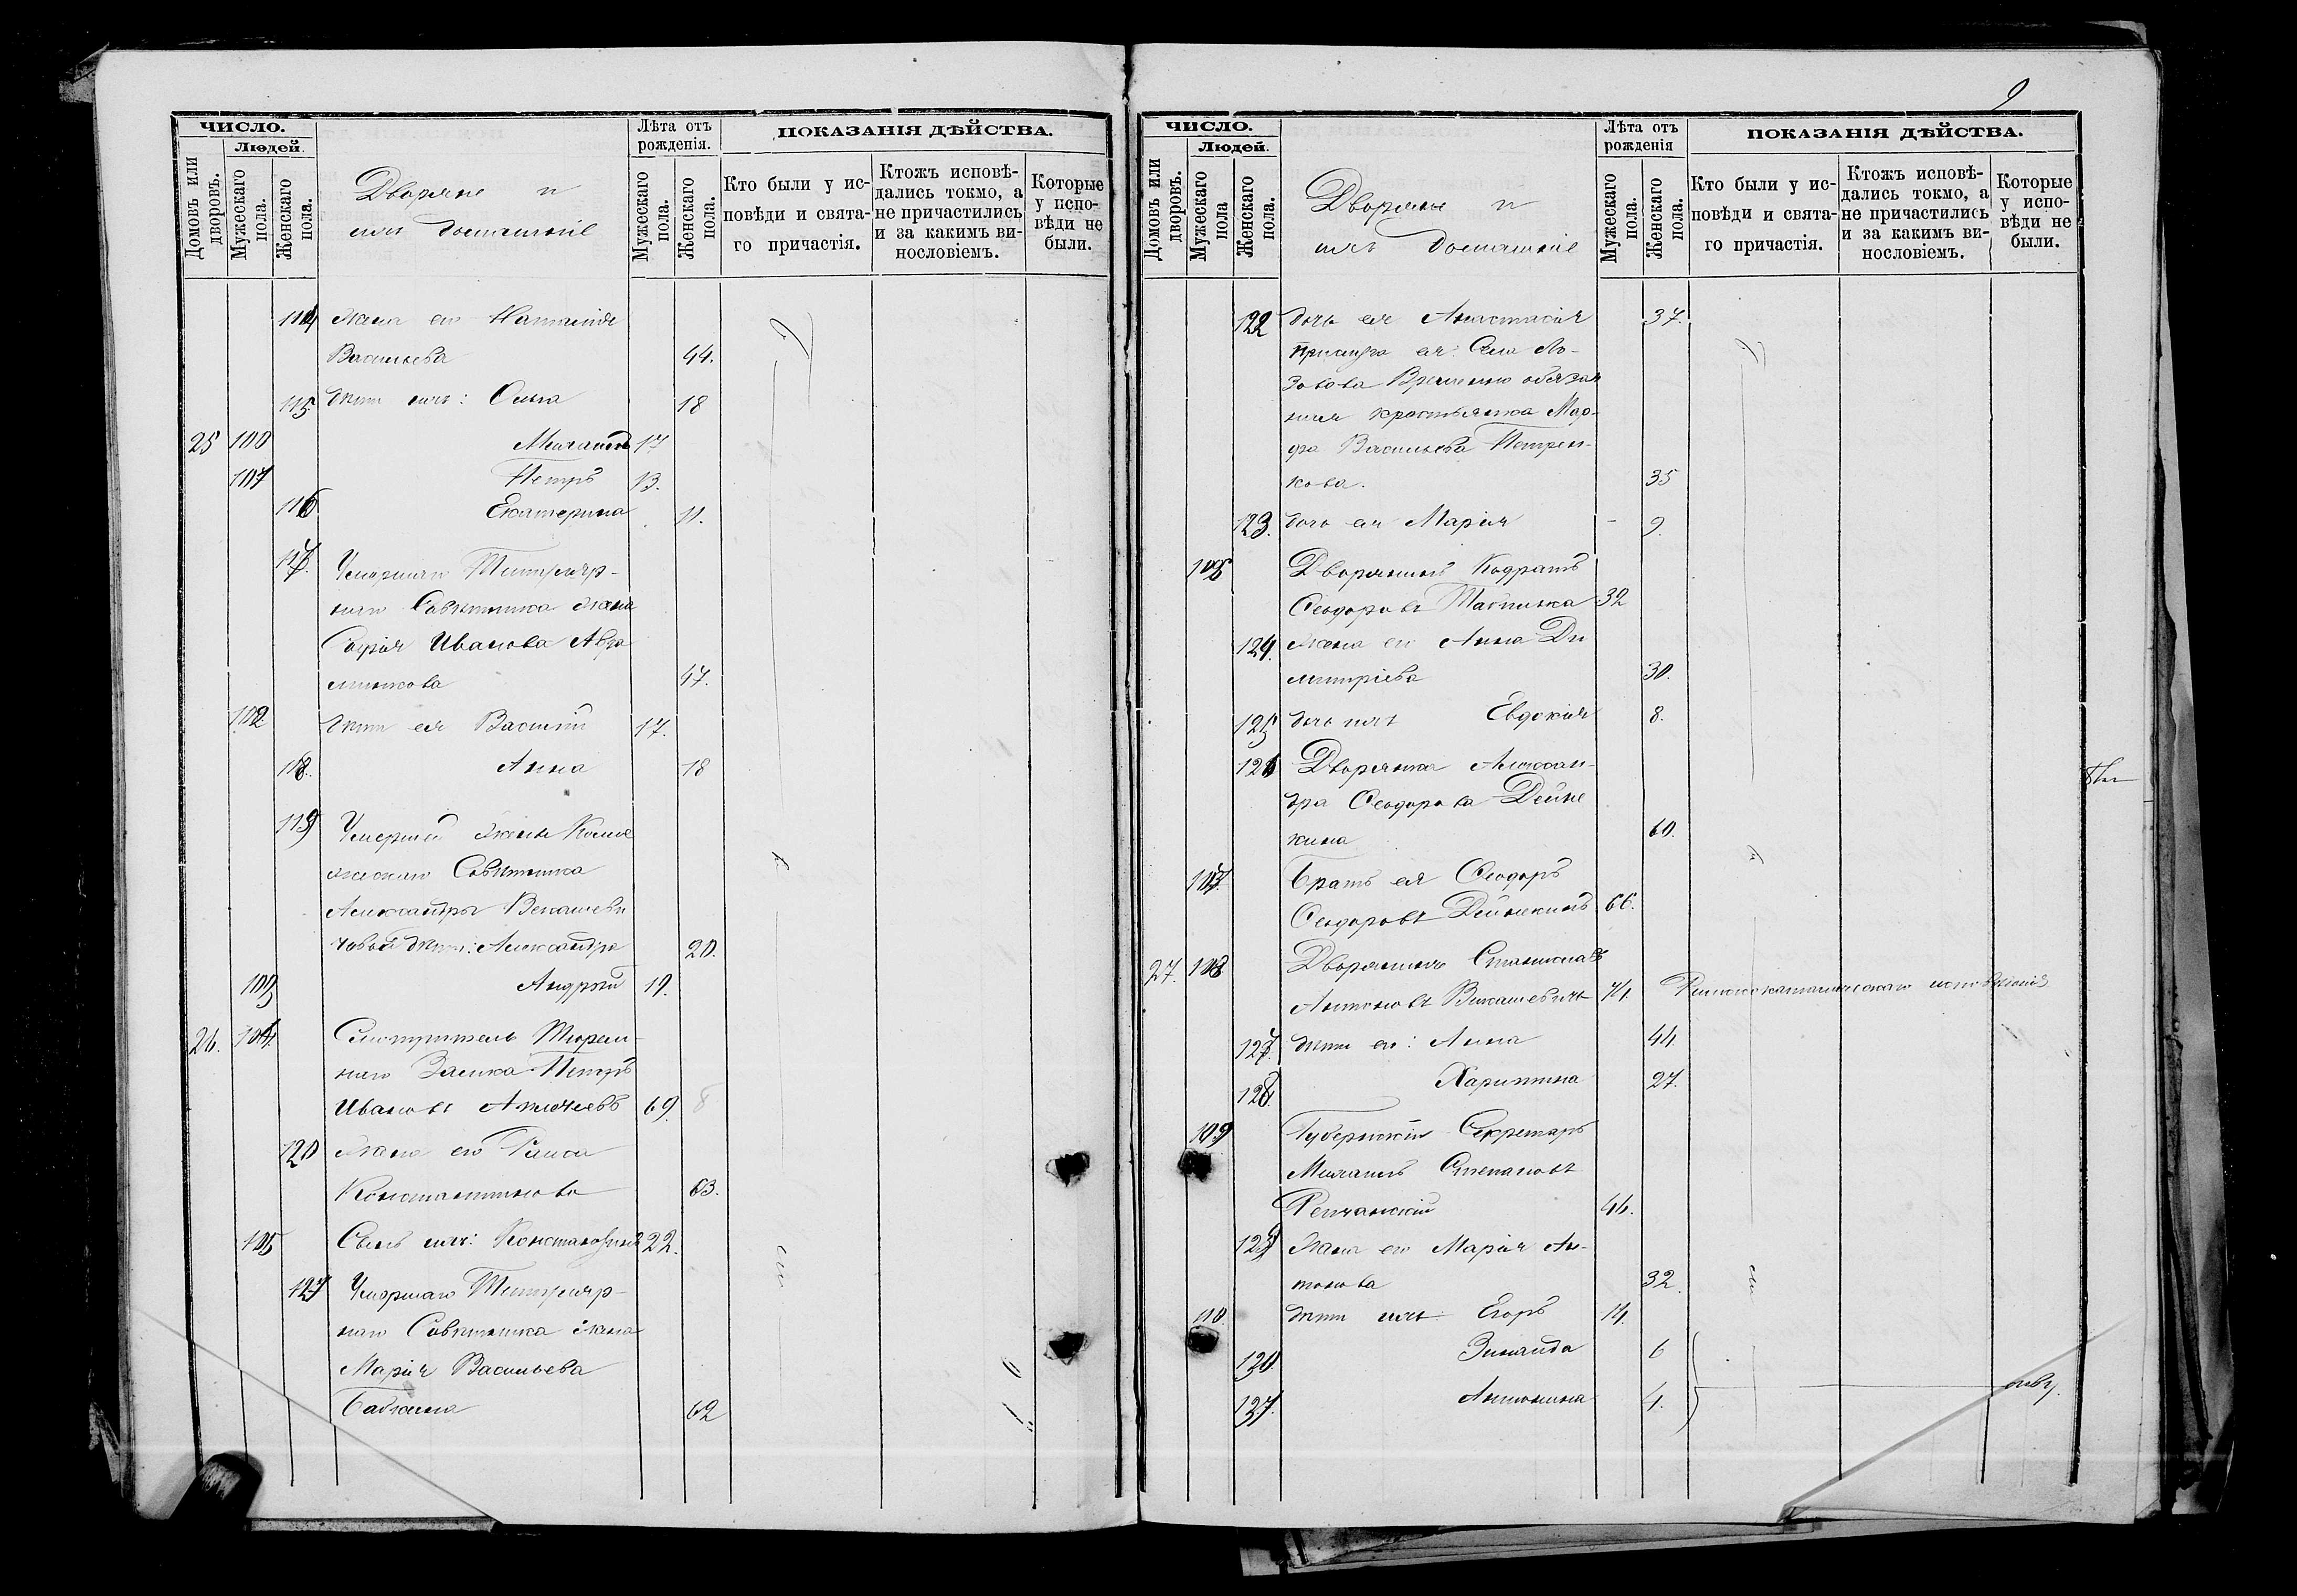 9
ЧИСЛО.
Людей.
Домовъ или дворовъ.
Мужескаго пола.
Женскаго пола.
Дворяне и
ихъ домашніе
Лѣта отъ рожденія.
Мужескаго пола.
Женскаго пола.
ПОКАЗАНІЯ ДѢЙСТВА.
Кто были у исповѣди и святаго причастія.
Ктожъ исповѣдались токмо, а не причастились и за какимъ винословіемъ.
Которые у исповѣди не были.
114 жена его Наталия
Васильева 44.
115. дѣти ихъ: Анна 18
25 100 Михаилъ 17
101 Петръ 13.
116 Екатерина 11.
117. Умершаго Титуляр-
наго Совѣтника жена
Софія Иванова
47.
102 дѣти ея Василій 17.
118. Анна 18
119 Умершей жены Колле
жскаго Совѣтника
Александры
дѣти: Александра 20.
103 Андрей 19.
26. 104. Смотритель Тюрем-
наго Замка Петръ
Ивановъ 69.
120 жена его Раиса
Константинова 63.
105 Сынъ ихъ: Константинъ 22.
121 Умершаго Титуляр-
наго Совѣтника жена
Марія Васильева
62
ЧИСЛО.
Людей.
Домовъ или дворовъ.
Мужескаго пола
Женскаго пола.
Дворяне и
ихъ домашніе
Лѣта отъ рожденія
Мужескаго пола.
Женскаго пола.
ПОКАЗАНІЯ ДѢЙСТВА.
Кто были у исповѣди и святаго причастія.
Ктожъ исповѣдались токмо, а не причастились и за какимъ винословіемъ.
Которые у исповѣди не были.
122 дочь ея Анастасія 37.
Прислуга ея: Села Ло-
зовова Временно обязан
ная крестьянка Мар-
фа Васильева Петрен-
кова. 35
123. дочь ея Марія 9.
106 Дворянинъ Кодратъ
Феодоровъ 32
124. жена его Анна Ди
митріева 30.
125 дочь ихъ Евдокія 8.
126 Дворянка Алексан-
дра Феодорова Дейне
кина 60.
107. Братъ ея Феодоръ
Феодоровъ Дейнекинъ 66.
27. 108 Дворянинъ Станиславъ
Антоновъ 74. Римскокатолическаго исповѣданія
127. дѣти его: Анна 44.
128. Харитина 27.
109 Губернскій Секретарь
Михаилъ Степановъ
44.
129 жена его Марія Ан-
тонова 32.
110. дѣти ихъ Егоръ 14.
130. Зинаида 6
131. Антонина 4.